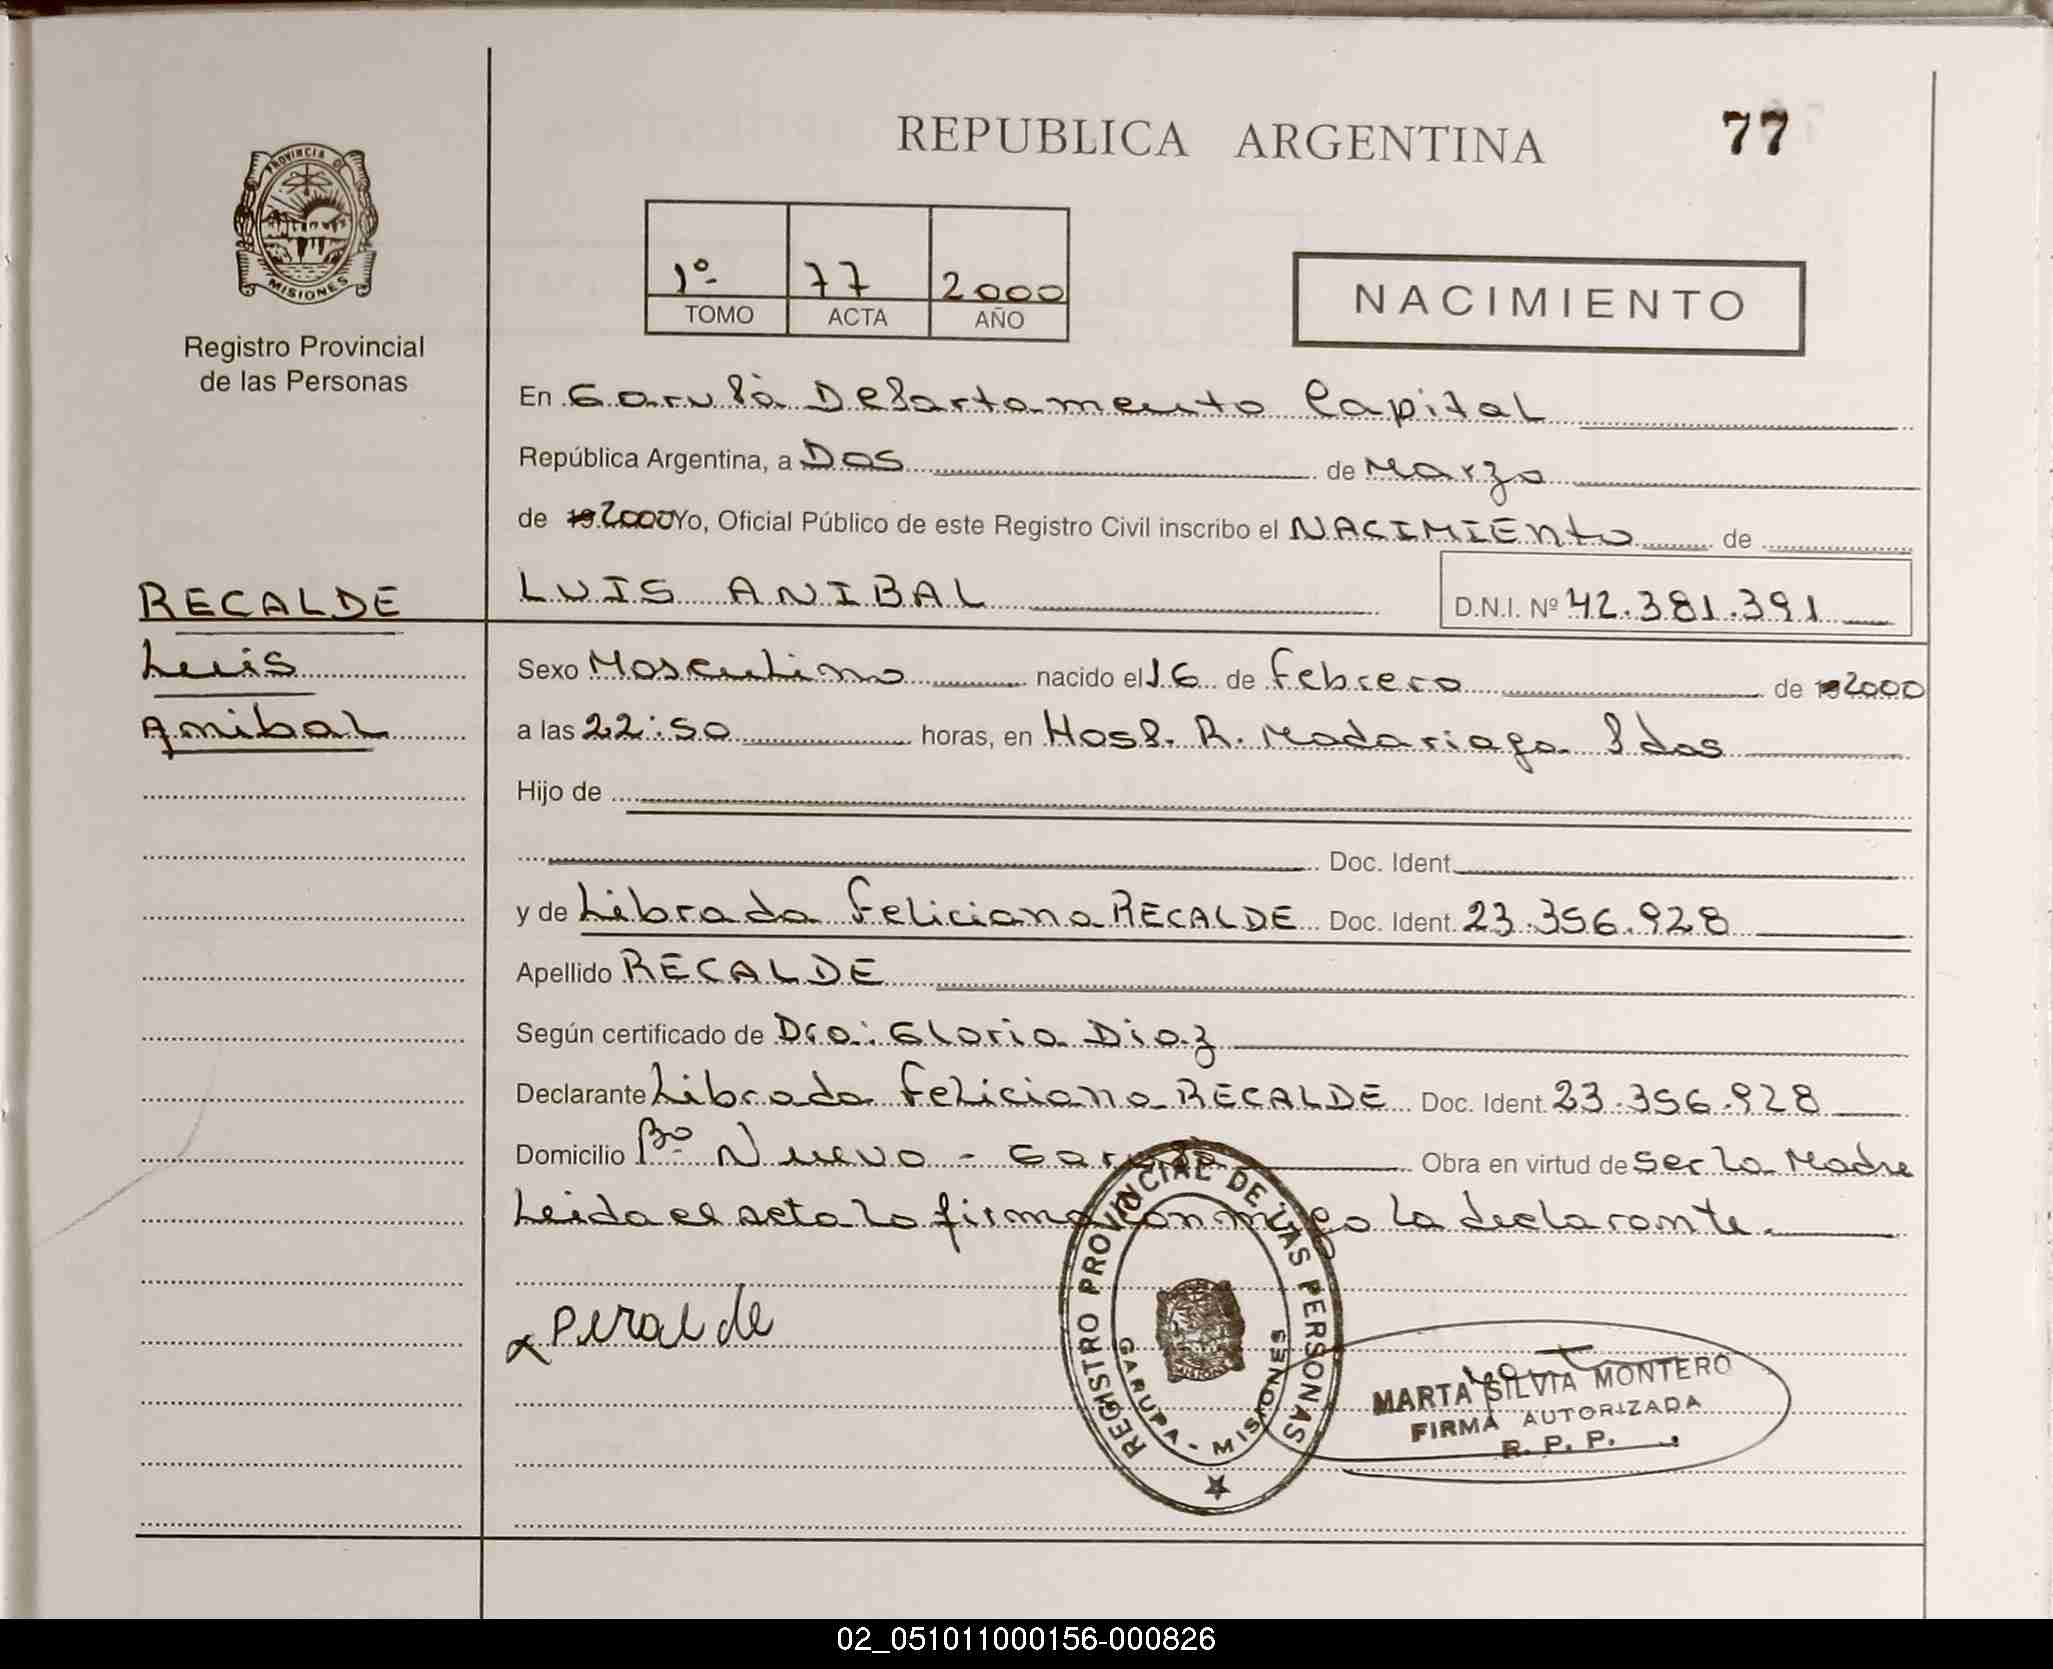 REPUBLICA ARGENTINA
77
PROVINCIA DE
MISIONES
Registro Provincial
de las Personas
1º 77 2000
TOMO ACTA AÑO
NACIMIENTO
En Garupá Departamento Capital
República Argentina, a Dos de Marzo
de 19 2000 Yo, Oficial Público de este Registro Civil inscribo el NACIMIENto de
RECALDE
Luis
Anibal
LUIS ANIBAL D.N.I. Nº 42.381.391
Sexo Masculino nacido el 16 de febrero de 19 2000
a las 22:50 horas, en Hosp. R. Madariaga Pdas
Hijo de
Doc. Ident.
y de Librada Feliciana RECALDE Doc. Ident. 23.356.928
Apellido RECALDE
Según certificado de Dra: Gloria Diaz
Declarante Librada Feliciana RECALDE Doc. Ident. 23.356.928
Domicilio Bº Nuevo - Garupá Obra en virtud de ser la Madre
Leida el acta la firma conmigo la declarante.
REGISTRO PROVINCIAL DE LAS PERSONAS
GARUPA - MISIONES
MISIONES
MARTA SILVIA MONTERO
FIRMA AUTORIZADA
R. P. P.
02_051011000156-000826